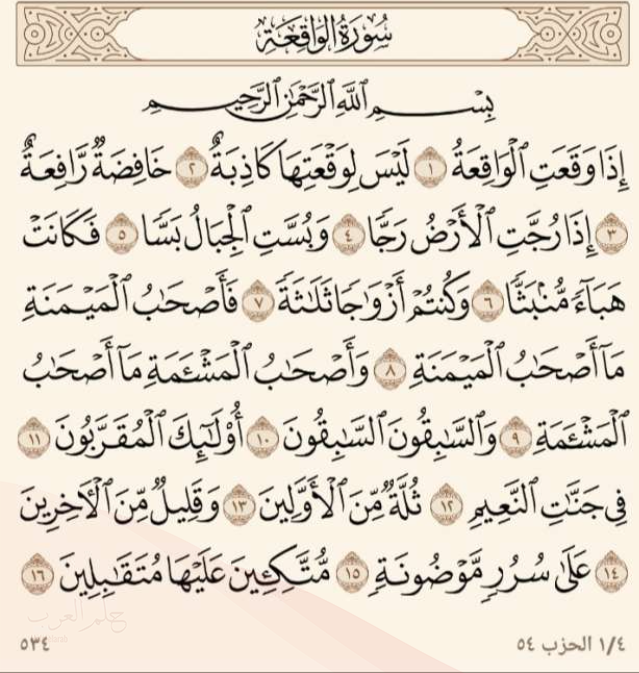 سُورَةُ الوَاقِعَةِ
بِسْمِ ٱللَّهِ ٱلرَّحْمَٰنِ ٱلرَّحِيمِ
إِذَا وَقَعَتِ ٱلْوَاقِعَةُ ١ لَيْسَ لِوَقْعَتِهَا كَاذِبَةٌ ٢ خَافِضَةٌ رَّافِعَةٌ
٣ إِذَا رُجَّتِ ٱلْأَرْضُ رَجًّا ٤ وَبُسَّتِ ٱلْجِبَالُ بَسًّا ٥ فَكَانَتْ
هَبَآءً مُّنۢبَثًّا ٦ وَكُنتُمْ أَزْوَٰجًا ثَلَٰثَةً ٧ فَأَصْحَٰبُ ٱلْمَيْمَنَةِ
مَآ أَصْحَٰبُ ٱلْمَيْمَنَةِ ٨ وَأَصْحَٰبُ ٱلْمَشْـَٔمَةِ مَآ أَصْحَٰبُ
ٱلْمَشْـَٔمَةِ ٩ وَٱلسَّٰبِقُونَ ٱلسَّٰبِقُونَ ١٠ أُو۟لَٰٓئِكَ ٱلْمُقَرَّبُونَ ١١
فِى جَنَّٰتِ ٱلنَّعِيمِ ١٢ ثُلَّةٌ مِّنَ ٱلْأَوَّلِينَ ١٣ وَقَلِيلٌ مِّنَ ٱلْءَاخِرِينَ
١٤ عَلَىٰ سُرُرٍ مَّوْضُونَةٍ ١٥ مُّتَّكِـِٔينَ عَلَيْهَا مُتَقَٰبِلِينَ ١٦
حلم العرب
١/٤ الحزب ٥٤
٥٣٤